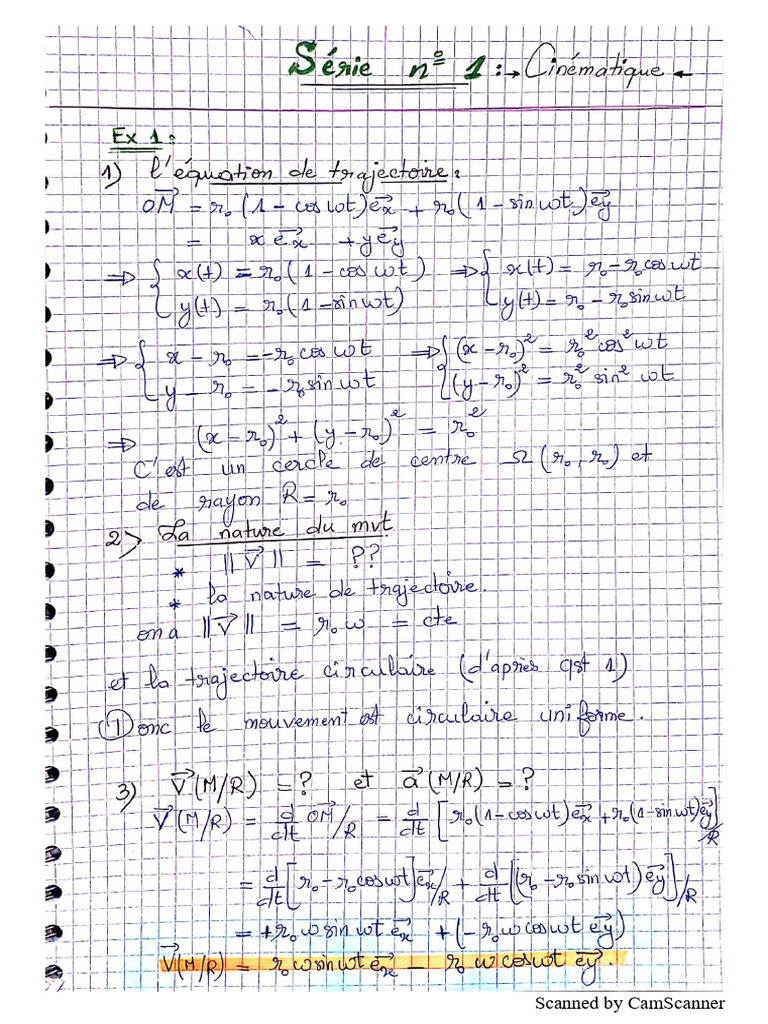 Série n° 1 :→ Cinématique ←
Ex 1 :
1) l'équation de trajectoire :
OM⃗ = r₀(1 - cos ωt)e⃗x + r₀(1 - sin ωt)e⃗y
= x e⃗x + y e⃗y
⇒ { x(t) = r₀(1 - cos ωt) ⇒ { x(t) = r₀ - r₀cos ωt
y(t) = r₀(1 - sin ωt) y(t) = r₀ - r₀ sin ωt
⇒ { x - r₀ = - r₀ cos ωt ⇒ { (x - r₀)² = r₀² cos² ωt
y - r₀ = - r₀ sin ωt (y - r₀)² = r₀² sin² ωt
⇒ (x - r₀)² + (y - r₀)² = r₀²
C'est un cercle de centre Ω (r₀, r₀) et
de rayon R = r₀
2) La nature du mvt
* ||V⃗|| = ??
* la nature de trajectoire.
on a ||V⃗|| = r₀ω = cte
et la trajectoire circulaire (d'après qst 1)
Donc le mouvement est circulaire uniforme.
3) V⃗(M/R) = ? et a⃗(M/R) = ?
V⃗(M/R) = d/dt OM⃗/R = d/dt [r₀(1 - cos ωt)e⃗x + r₀(1 - sin ωt)e⃗y]/R
= d/dt [r₀ - r₀cos ωt]e⃗x/R + d/dt [(r₀ - r₀ sin ωt)e⃗y]/R
= + r₀ω sin ωt e⃗x + (- r₀ω cos ωt e⃗y)
V⃗(M/R) = r₀ω sin ωt e⃗x - r₀ω cos ωt e⃗y.
Scanned by CamScanner